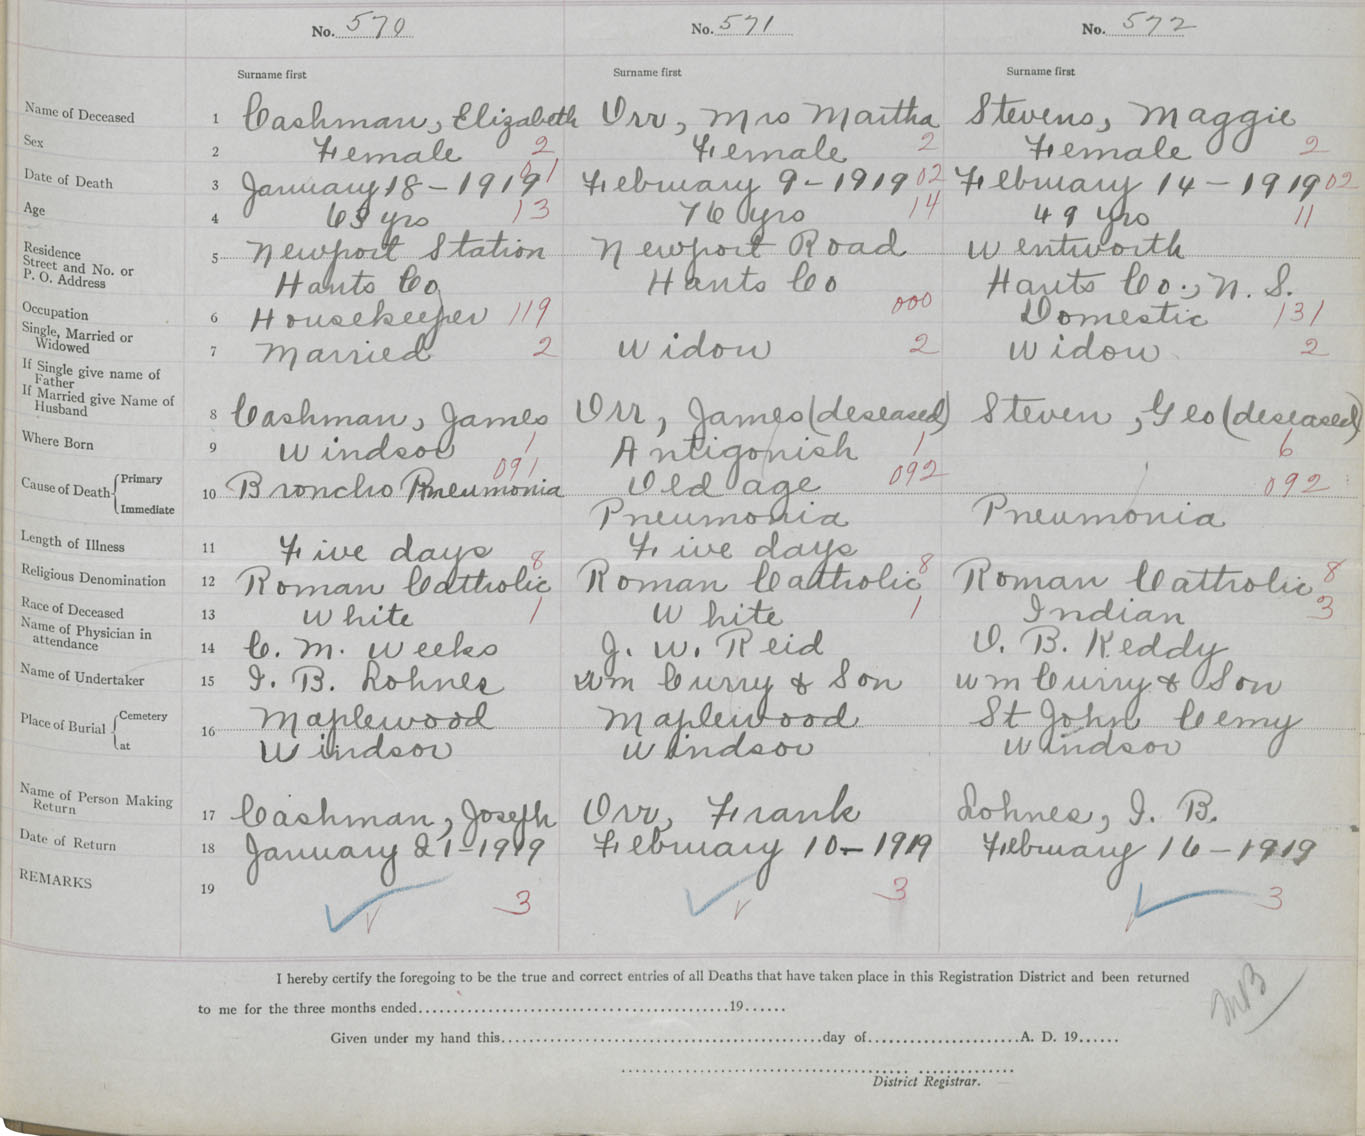 No. 570 No. 571 No. 572
Surname first Surname first Surname first
Name of Deceased 1 Cashman, Elizabeth Orr, Mrs Martha Stevens, Maggie
Sex 2 Female 2 Female 2 Female 2
Date of Death 3 January 18 - 1919 01 February 9 - 1919 02 February 14 - 1919 02
Age 4 63 yrs 13 76 yrs 14 49 yrs 11
Residence
Street and No. or 5 Newport Station Newport Road Wentworth
P. O. Address Hants Co Hants Co Hants Co., N. S.
Occupation 6 Housekeeper 119 000 Domestic 131
Single, Married or
Widowed 7 Married 2 Widow 2 Widow 2
If Single give name of
Father
If Married give Name of
Husband 8 Cashman, James Orr, James (deseased) Steven, Geo (deseased)
Where Born 9 Windsor 1 Antigonish 1 6
Cause of Death Primary 10 Broncho Pneumonia 091 Old age 092 092
Immediate Pneumonia Pneumonia
Length of Illness 11 Five days Five days
Religious Denomination 12 Roman Catholic 8 Roman Catholic 8 Roman Catholic 8
Race of Deceased 13 White 1 White 1 Indian 3
Name of Physician in
attendance 14 C. M. Weeks J. W. Reid O. B. Keddy
Name of Undertaker 15 I. B. Lohnes Wm Curry & Son Wm Curry & Son
Place of Burial Cemetery 16 Maplewood Maplewood St John Cemy
at Windsor Windsor Windsor
Name of Person Making
Return 17 Cashman, Joseph Orr, Frank Lohnes, I. B.
Date of Return 18 January 21 - 1919 February 10 - 1919 February 16 - 1919
REMARKS 19 3 3 3
I hereby certify the foregoing to be the true and correct entries of all Deaths that have taken place in this Registration District and been returned
to me for the three months ended 19
Given under my hand this day of A. D. 19
District Registrar.